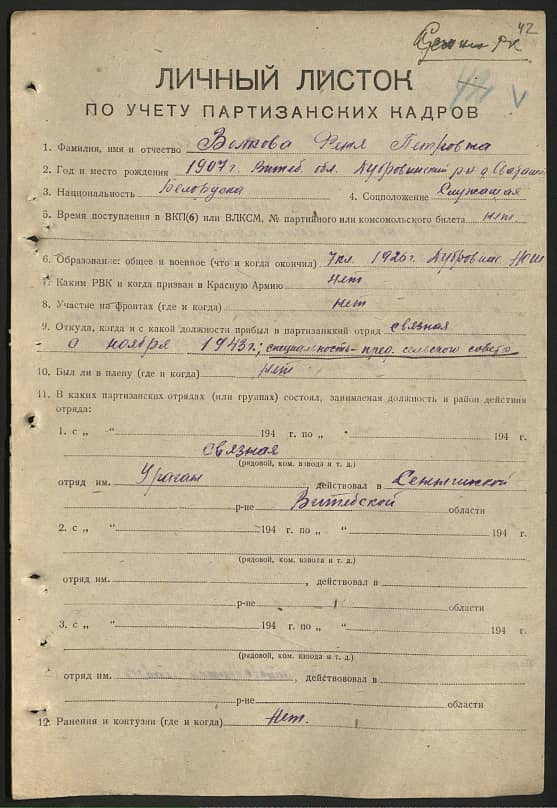 42
ЛИЧНЫЙ ЛИСТОК
ПО УЧЕТУ ПАРТИЗАНСКИХ КАДРОВ
1. Фамилия, имя и отчество Волкова Петровна
2. Год и место рождения 1907 г. Витеб. обл. Дубровинский р-н д.
3. Национальность Белоруска 4. Соцположение Служащая
5. Время поступления в ВКП(б) или ВЛКСМ, № партийного или комсомольского билета нет
6. Образование: общее и военное (что и когда окончил) 7 кл. 1926 г.
7. Каким РВК и когда призван в Красную Армию нет
8. Участие на фронтах (где и когда) нет
9. Откуда, когда и с какой должности прибыл в партизанкий отряд связная
с ноября 1943 г.; специальность - пред. сельского совета
10. Был ли в плену (где и когда) нет
11. В каких партизанских отрядах (или группах) состоял, занимаемая должность и район действия
отряда:
1. с „ “ 194 г. по „ “ 194 г.
связная
(рядовой, ком. взвода и т. д.)
отряд им. Ураган, действовал в Сеннинской
р-не Витебской области
2. с „ “ 194 г. по „ “ 194 г.
(рядовой, ком. взвода и т. д.)
отряд им. , действовал в
р-не области
3. с „ “ 194 г. по „ “ 194 г.
(рядовой, ком. взвода и т. д.)
отряд им. , действововал в
р-не области
12. Ранения и контузии (где и когда) Нет.